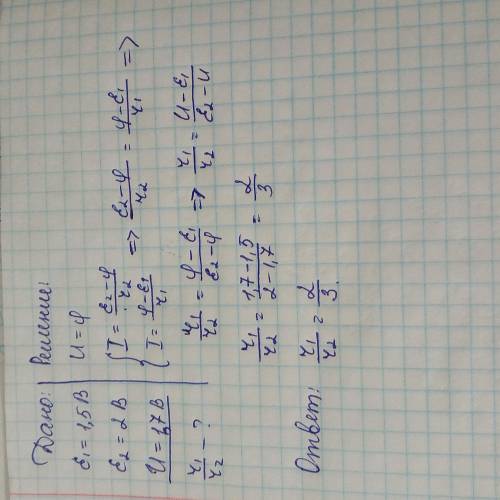 Дано: Решение:
ℰ₁ = 1,5 В U = φ
ℰ₂ = 2 В { I = (ℰ₂ − φ)/r₂
U = 1,7 В { I = (φ − ℰ₁)/r₁ => (ℰ₂ − φ)/r₂ = (φ − ℰ₁)/r₁ =>
r₁/r₂ − ? r₁/r₂ = (φ − ℰ₁)/(ℰ₂ − φ) => r₁/r₂ = (U − ℰ₁)/(ℰ₂ − U)
r₁/r₂ = (1,7 − 1,5)/(2 − 1,7) = 2/3
Ответ: r₁/r₂ = 2/3.